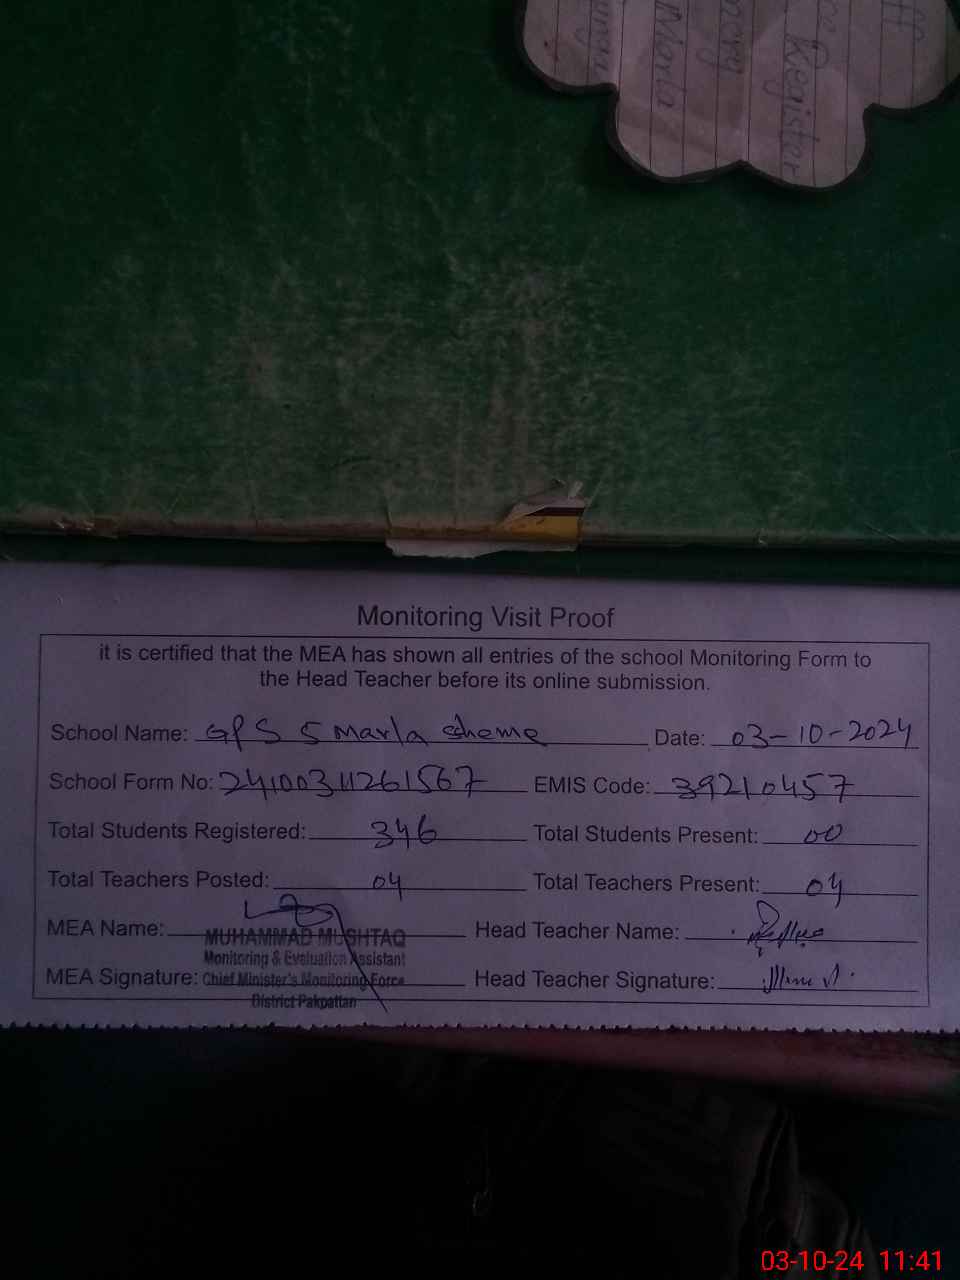 Register
Marla
Monitoring Visit Proof
it is certified that the MEA has shown all entries of the school Monitoring Form to
the Head Teacher before its online submission.
School Name: GPS 5 Marla Scheme Date: 03-10-2024
School Form No: 24100311261567 EMIS Code: 39210457
Total Students Registered: 346 Total Students Present: 00
Total Teachers Posted: 04 Total Teachers Present: 04
MEA Name: Head Teacher Name:
MUHAMMAD MUSHTAQ
Monitoring & Evaluation Assistant
MEA Signature: Chief Minister's Monitoring Force Head Teacher Signature:
District Pakpattan
03-10-24 11:41